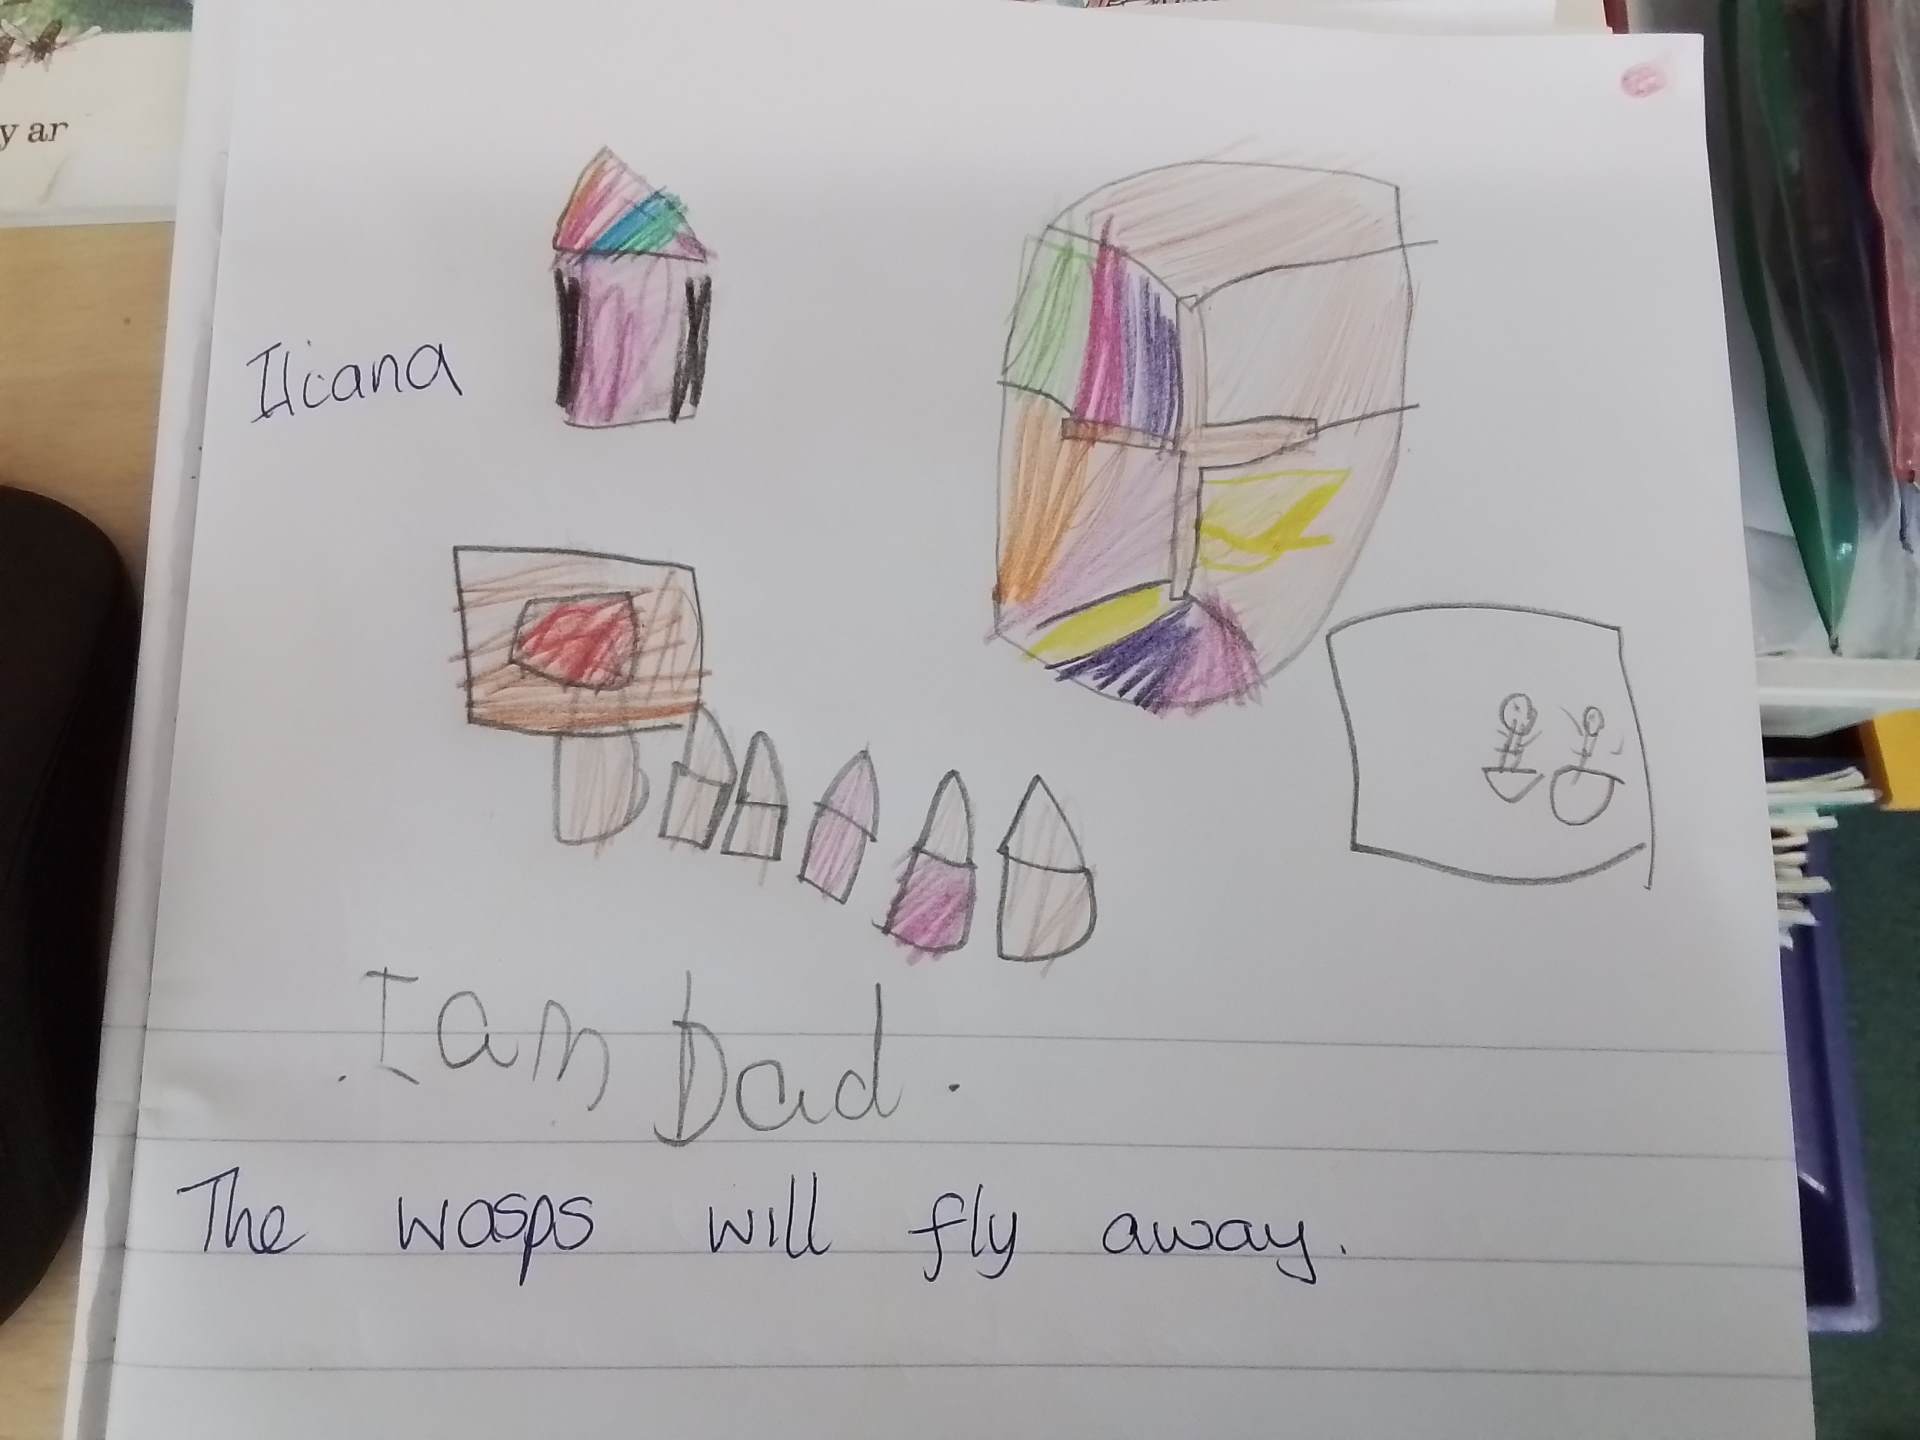 y ar
Iliana
I am Dad.
The wasps will fly away.